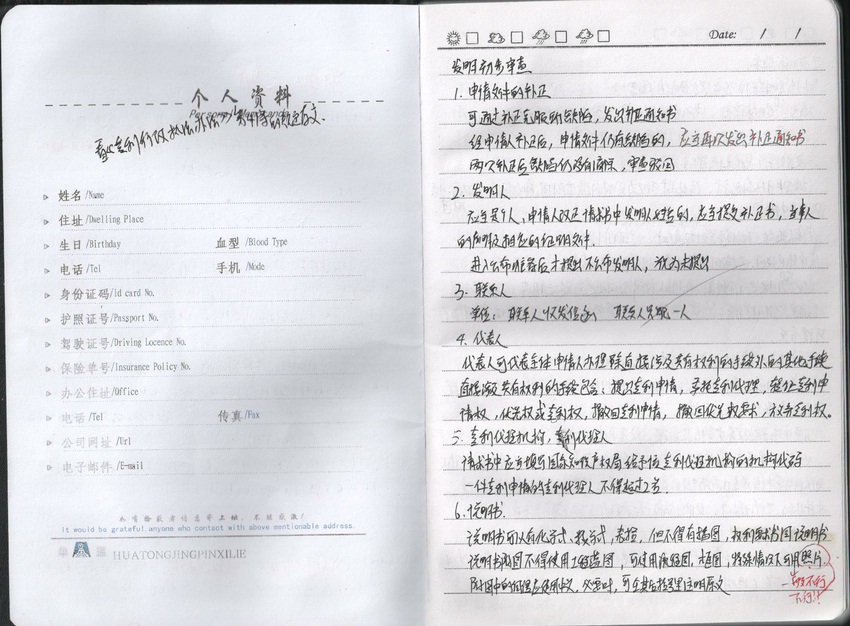 个人资料
姓名/Name
住址/Dwelling Place
生日/Birthday 血型/Blood Type
电话/Tel 手机/Mode
身份证码/id card No.
护照证号/Passport No.
驾驶证号/Driving Locence No.
保险单号/Insurance Policy No.
办公住址/Office
电话/Tel 传真/Fax
公司网址/Url
电子邮件/E-mail
it would be grateful.anyone who contact with above mentionable address.
HUATONGJINGPINXILIE
Date: / /
发明初步审查
1. 申请文件的补正
可通过补正克服的缺陷，发出补正通知书
经申请人补正后，申请文件仍有缺陷的，应当再次发出补正通知书
两次补正后缺陷仍没有消除，审查驳回
2. 发明人
应当是个人、申请人改正请求书中发明人姓名的，应当提交补正书，当事人
的声明及相应的证明文件.
进入公布准备后才提出不公布发明人，视为未提出
3. 联系人
单位：联系人收发信函 联系人只限一人
4. 代表人
代表人可代表全体申请人办理除直接涉及共有权利的手续外的其他手续
直接涉及共有权利的手续包含：提出专利申请，委托专利代理，转让专利申
请权，优先权或专利权，撤回专利申请，撤回优先权要求，放弃专利权。
5. 专利代理机构，专利代理人
请求书中应当填写国家知识产权局给予该专利代理机构的机构代码
一件专利申请的专利代理人不得超过2名.
6. 说明书
说明书可以有化学式、数学式，表格，但不得有插图，权利要求书同说明书
说明书附图不得使用工程蓝图，可使用流程图、框图，特殊情况下可用照片.
附图中的 必要时，可在其后括号里注明原文
不行!!